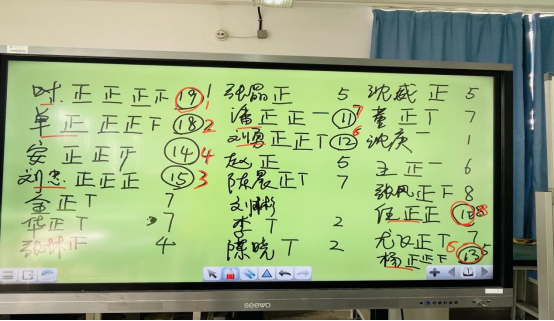 时 正 正 正 正 19 1
单 正 正 正 下 18 2
安 正 正 14 4
刘忠 正 正 正 15 3
金 正 丅 7
华 正 丅 7
张 4
张晶 正 5
潘 正 正 一 11 7
刘勇 正 正 丅 12 6
赵 正 5
陈晨 正 丅 7
刘彬
李 丅 2
陈晓 丅 2
沈威 正 5
董 正 丅 7
沈庚 一 1
王 正 一 6
张凤 正 下 8
任 正 正 8
尤 正 丅 7
杨 正 正 下 13 5
seewo